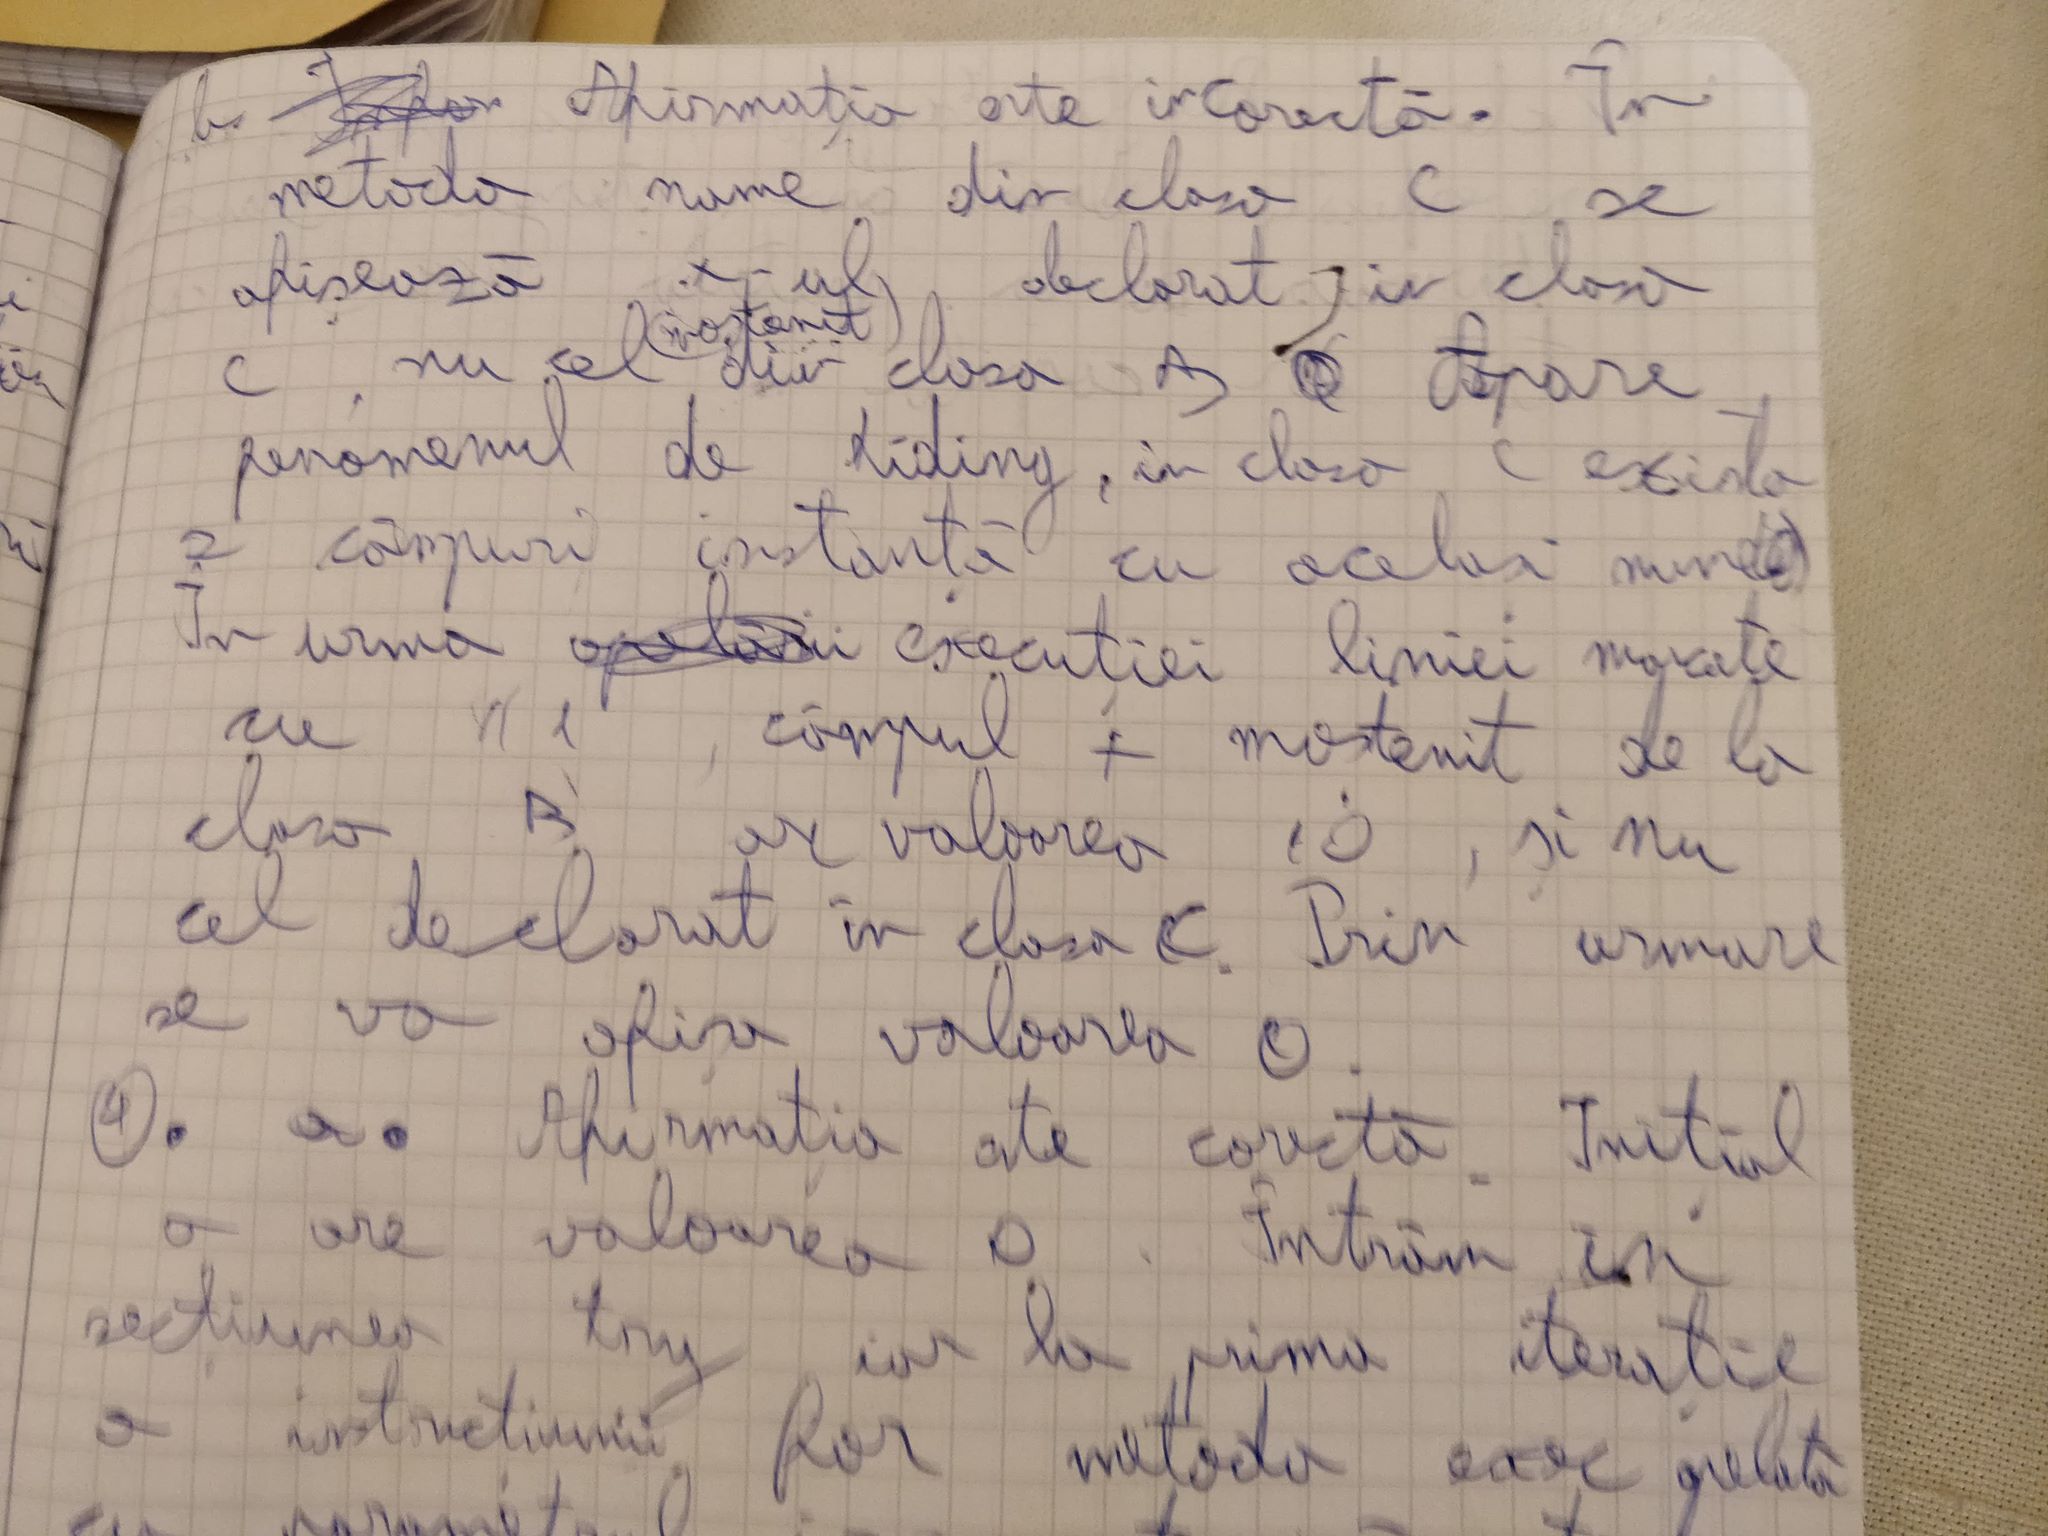 b. Afirmația este incorectă. În
metoda name din clasa C se
afișează x-ul declarat in clasa
C, nu cel (moștenit) din clasa B. Apare
fenomenul de hiding, in clasa C exista
2 câmpuri instanță cu acelasi nume
În urma execuției liniei marcate
cu //1, câmpul x mostenit de la
clasa B are valoarea 10, și nu
cel declarat în clasa C. Prin urmare
se va afișa valoarea 0.
4. a. Afirmația este corectă. Inițial
a are valoarea 0. Intrăm în
secțiunea try iar la prima iterație
a instrucțiunii for metoda exec apelată
cu parametrul